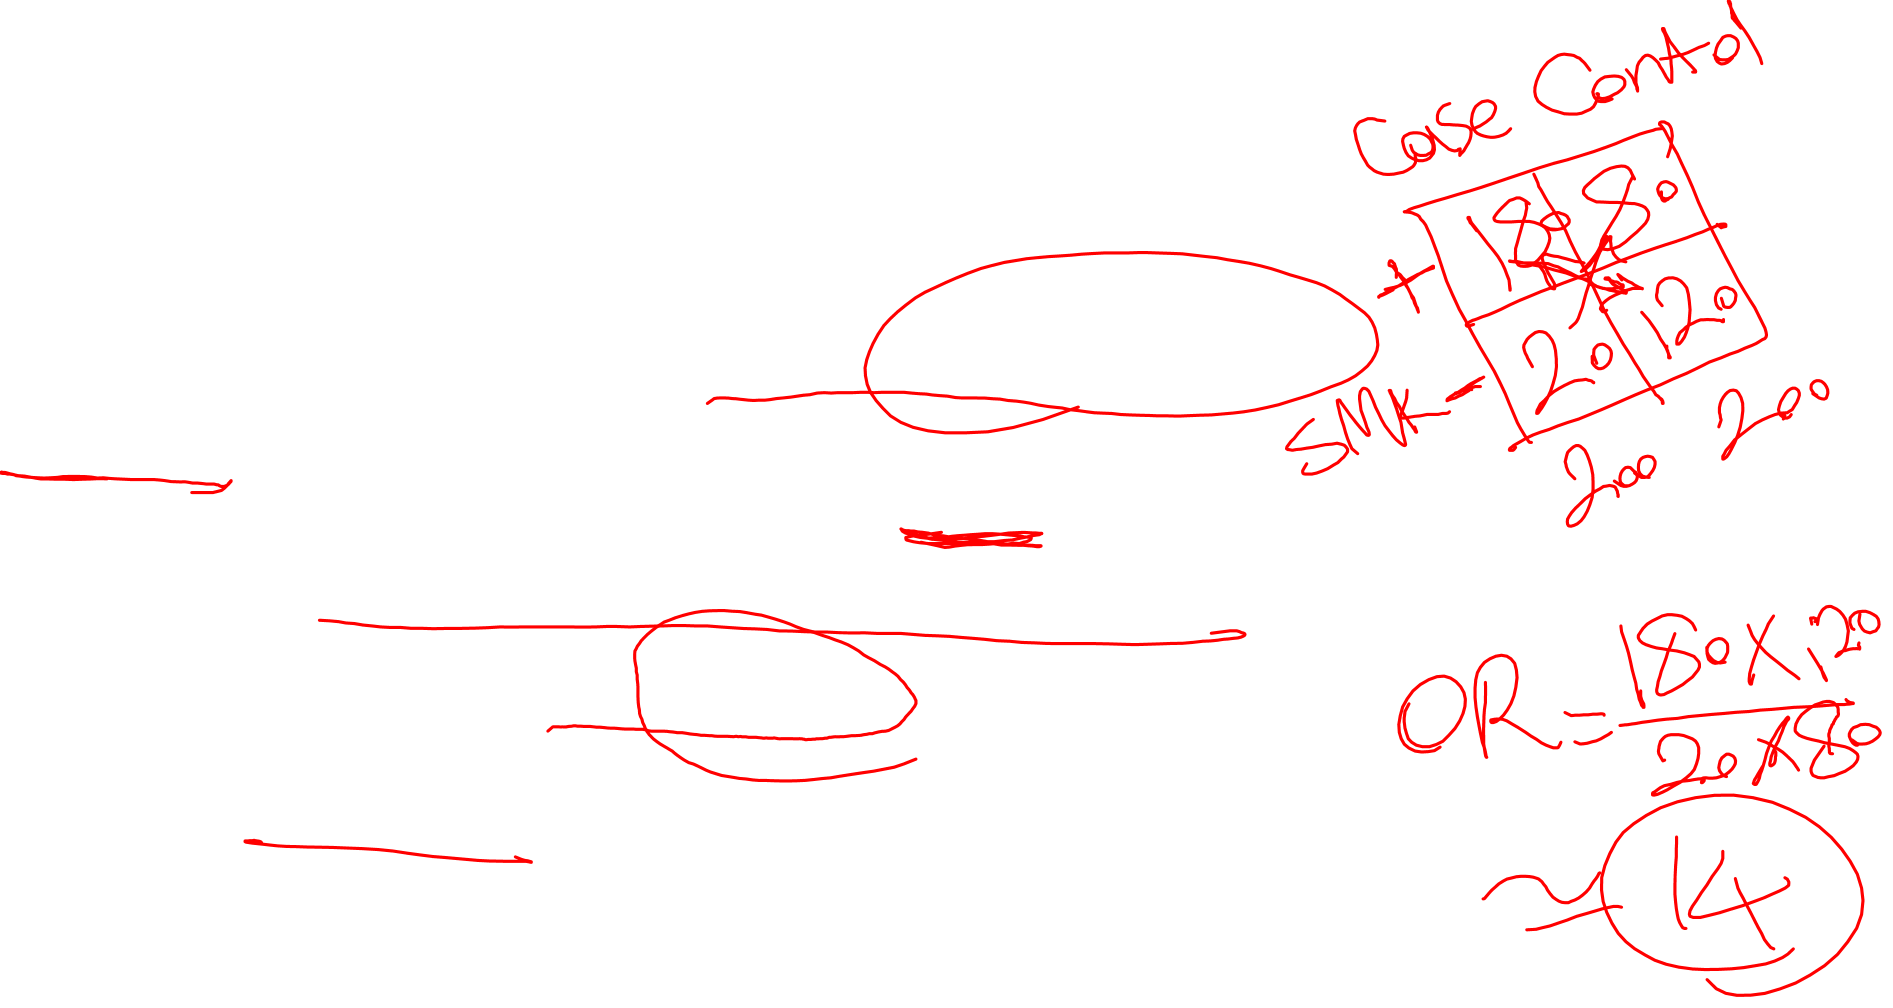 Case Control
+ 180 80
SMK - 20 120
200 200
OR = 180 X 120
20 X 80
≃ 14